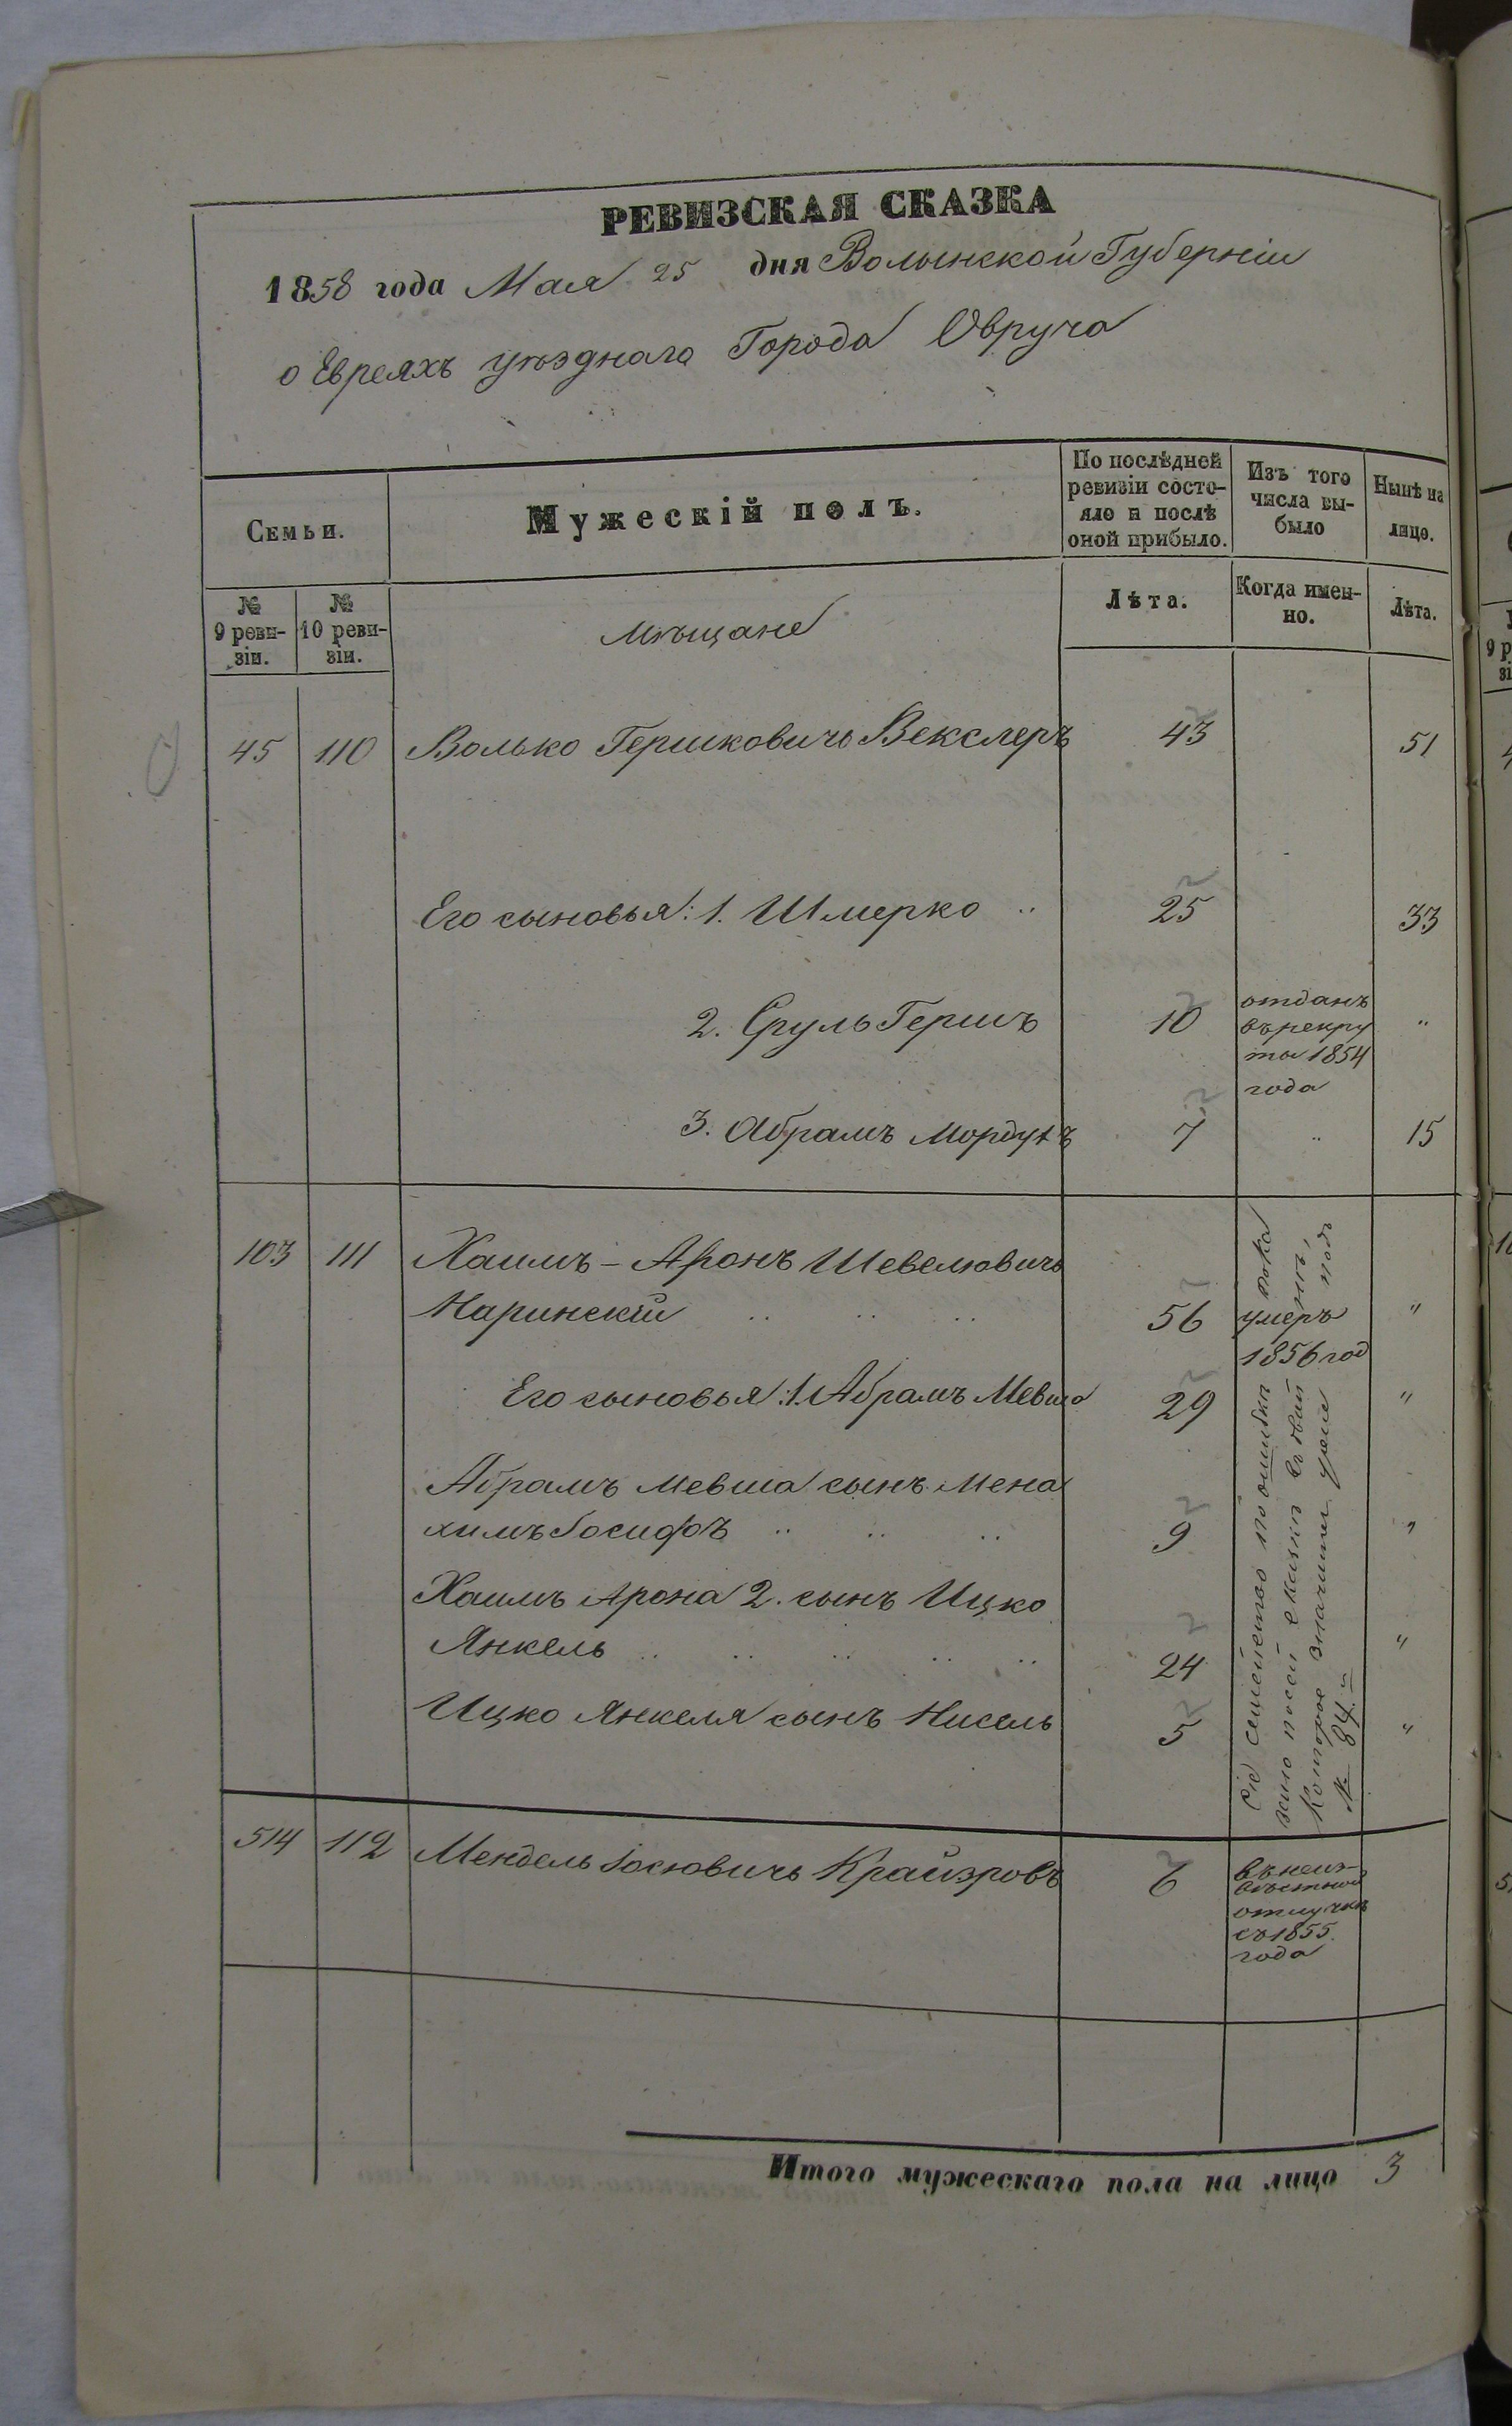 РЕВИЗСКАЯ СКАЗКА
1858 года Мая 25 дня Волынской Губерніи
о Евреяхъ уѣзднаго Города Овруча
Семьи.
Мужескій полъ.
По послѣдней ревизіи состояло и послѣ оной прибыло.
Изъ того числа выбыло
Нынѣ на лицо.
№ 9 ревизіи.
№ 10 ревизіи.
Мѣщане
Лѣта.
Когда именно.
Лѣта.
45 110 Волько Гершковичъ Векслеръ 43 51
Его сыновья: 1. Шмерко 25 33
2. Сруль Гершъ 10 отданъ
въ рекру
ты 1854
года
3. Абрамъ Мордухъ 7 15
103 111 Хаимъ-Аронъ Шевелювичъ
Наринскій 56 умеръ
1856 год
Его сыновья: 1. Абрамъ Мевша 29
Абрамъ Мевша сынъ Мена
химъ Іосифъ 9
Хаимъ Арона 2. сынъ Ицко
Янкель 24
Ицко Янкеля сынъ Нисель 5
Сіе семейство по ошибкѣ пока
зано по сей сказкѣ
Которое значится подъ
№ 84.
514 112 Мендель Іосіовичъ Крайзровъ 6 въ неиз-
вѣстной
отлучкѣ
съ 1855
года
Итого мужескаго пола на лицо 3